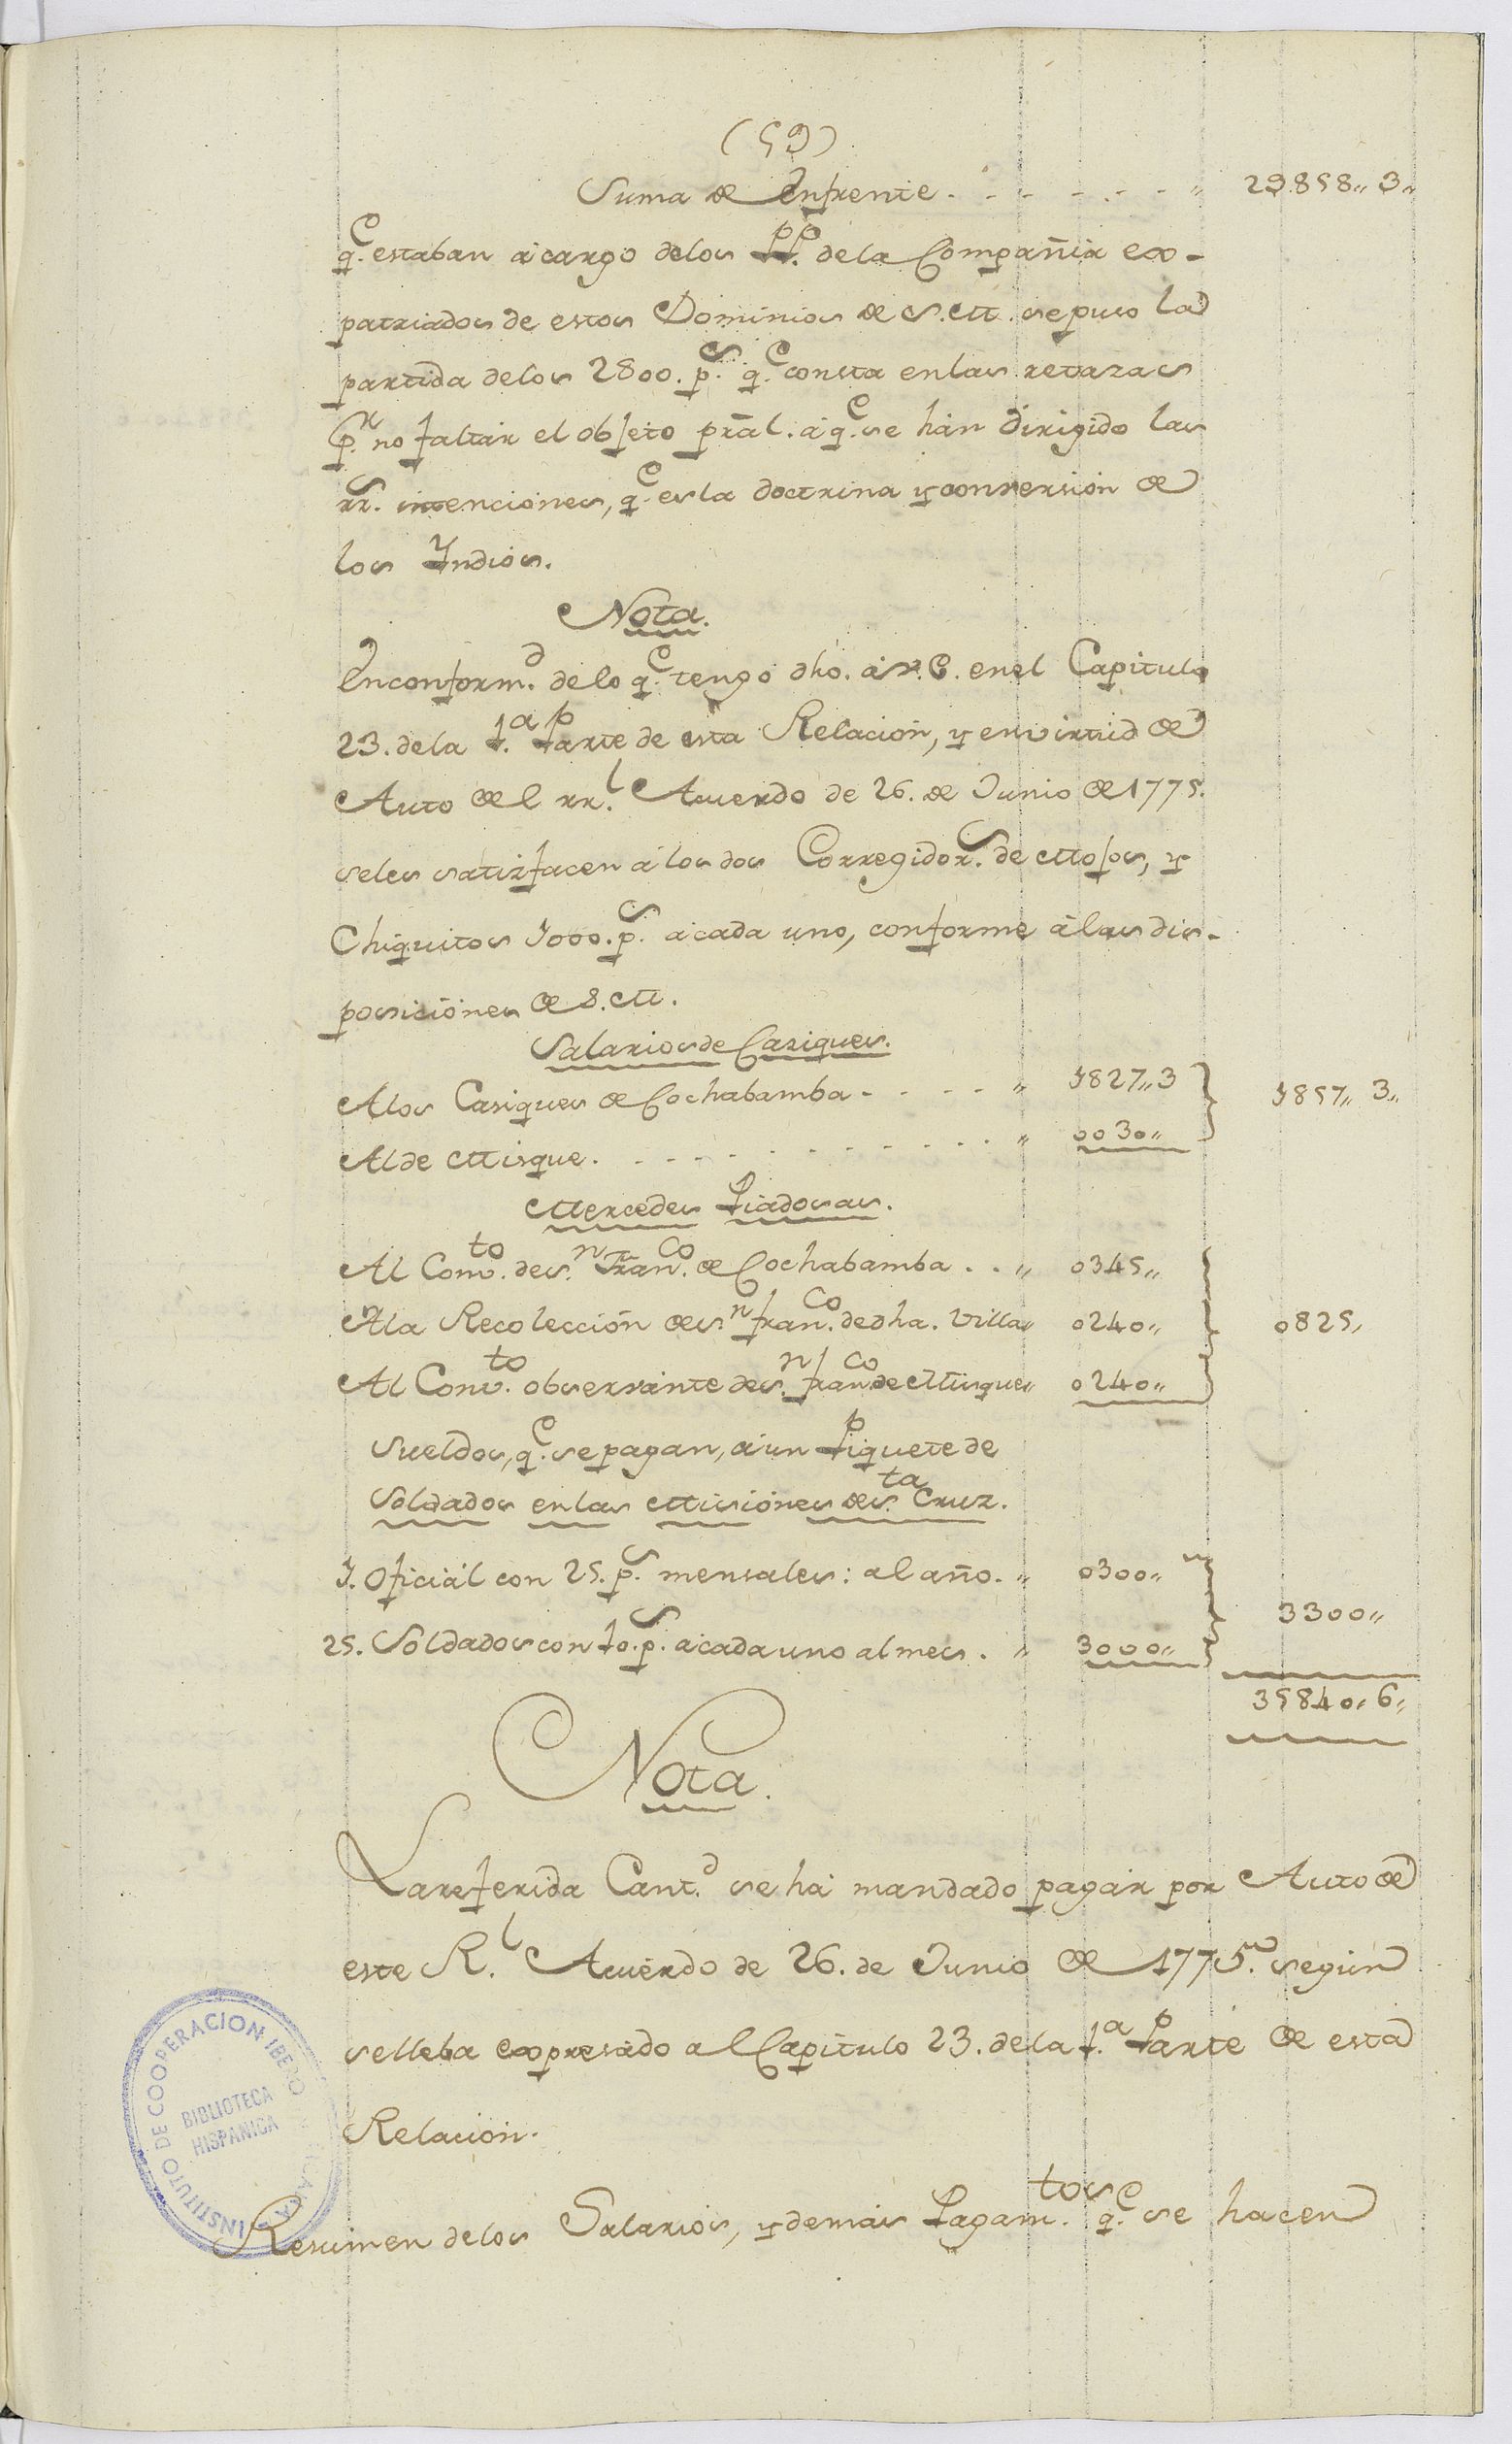 (59)
Suma de Enfrente. - - - - - - " 29.858,, 3,,
q.e estaban á cargo delos PP. dela Compañia ex-
patriados de estos Dominios de S.M. se puso la
partida delos 2800. p.s q.e consta enlas retazas
p.r no faltar el objeto prãl. á q.e se hán dirigido las
rr.s intenciones, q.e es la doctrina y conversion de
los Yndios.
Nota.
En conform.d de lo q.e tengo dho. á V.E. enel Capitulo
23. dela 1.a Parte de esta Relacion, y en virtud de
Auto del rr.l Acuerdo de 26. de Junio de 1775.
seles satisfacen á los dos Corregidor.s de Mojos, y
Chiquitos 1000. p.s á cada uno, conforme á las dis-
posiciónes de S.M.
Salarios de Casiques.
Alos Casiques de Cochabamba - - - - - " 1827,, 3 1857,, 3,,
Al de Misque. - - - - - - - - - - - " 0030,,
Mercedes Piadosas.
Al Conv.to de S.n Fran.co de Cochabamba . . " 0345,,
Ála Recoleccion de S.n Fran.co de dha. Villa " 0240,, 0825,
Al Conv.to observante de S.n Fran.co de Misque " 0240,,
Sueldos, q.e se pagan, á un Piquete de
Soldados en las Misiónes de S.ta Cruz.
1. Oficiál con 25. p.s mensales: al año. " 0300,,
3300,,
25. Soldados con 10. p.s á cada uno al mes. " 3000,,
35840,, 6,,
Nota.
La referida Cant.d se há mandado pagár por Auto de
este R.l Acuerdo de 26. de Junio de 1775. según
se lleba expresádo al Capitulo 23. dela 1.a Parte de esta
Relacion.
Resúmen delos Salarios, y demás Pagam.tos q.e se hacen
INSTITUTO DE COOPERACION IBEROAMERICANA
BIBLIOTECA
HISPANICA